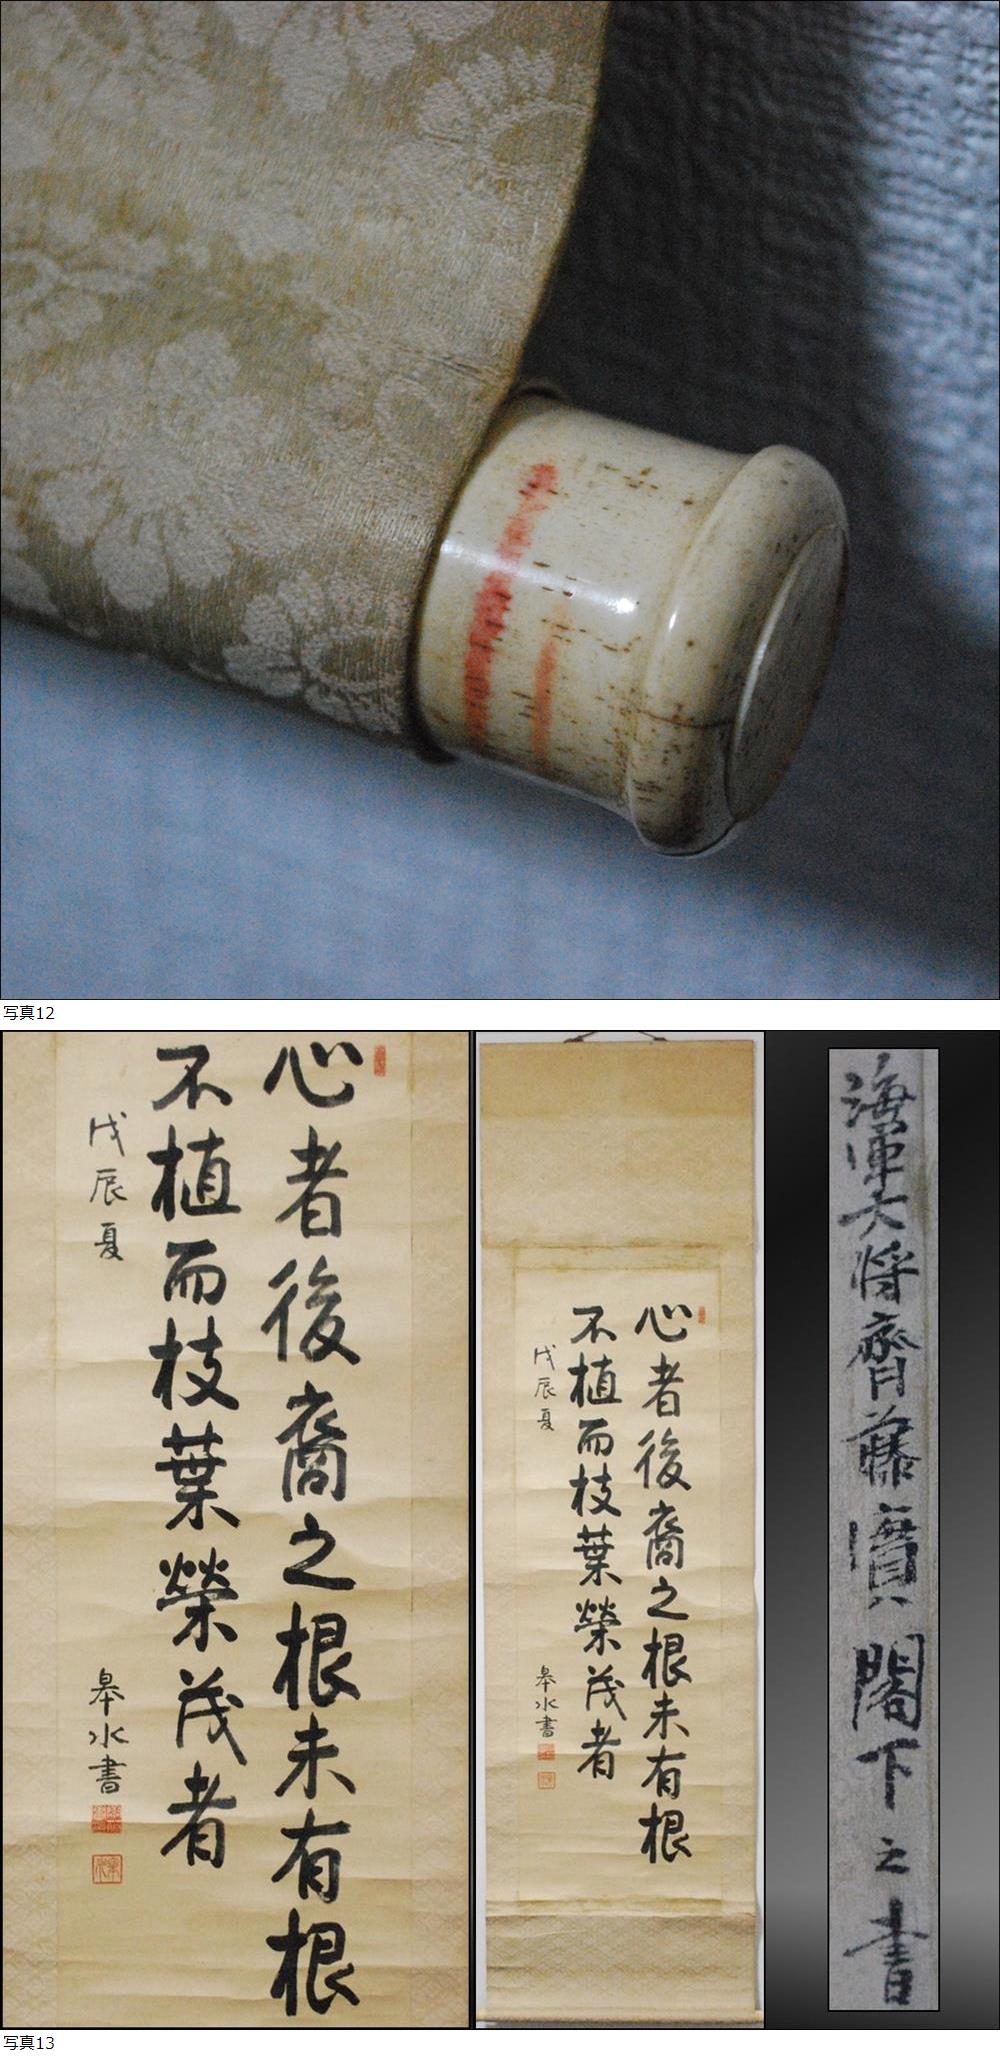 写真12
心者後裔之根未有根
不植而枝葉榮茂者
戊辰夏
皋水書
心者後裔之根未有根
不植而枝葉榮茂者
戊辰夏
皋水書
海軍大将齊藤實閣下之書
写真13